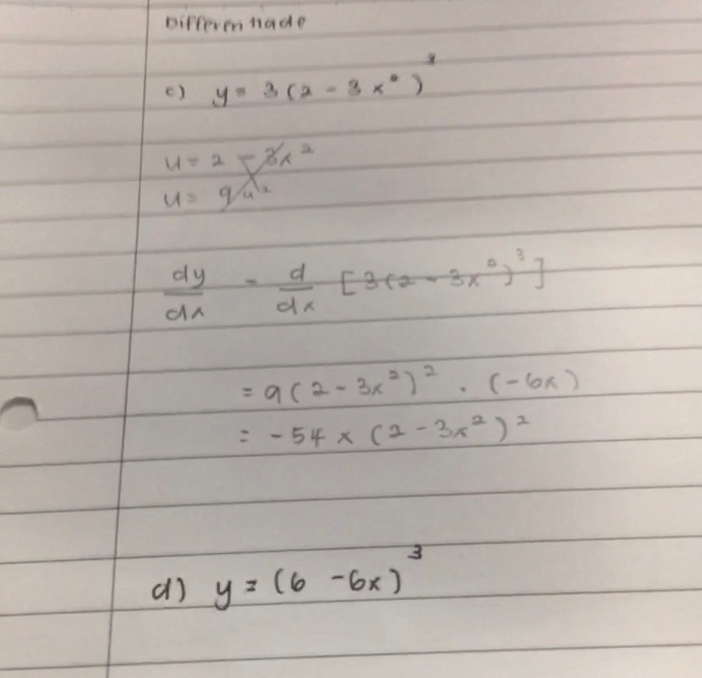 Differentiade
c) y = 3(2 - 3x²)³
u = 2 - 3x²
u =
dy/dx = d/dx [3(2 - 3x²)³]
= 9(2 - 3x²)² . (-6x)
= -54x(2 - 3x²)²
d) y = (6 - 6x)³